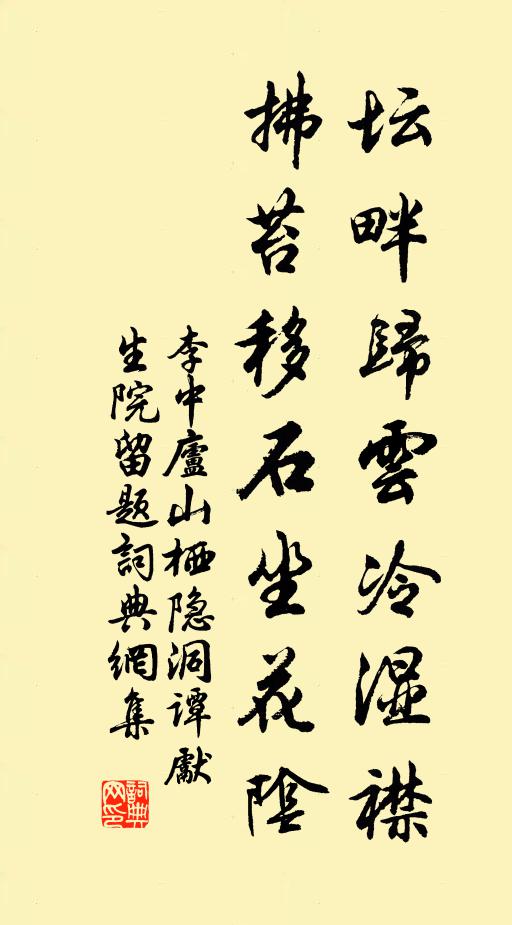 坛畔歸雲冷湿襟
拂苔移石坐花陰
李中廬山栖隐洞谭獻
生院留题詞典網集
詞典网印